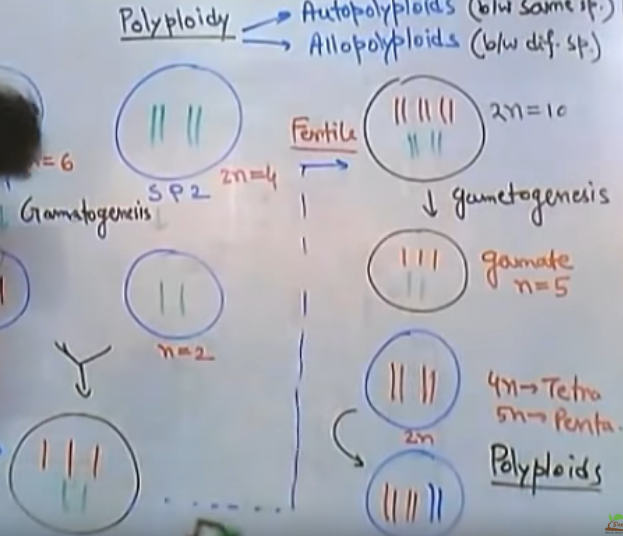 Polyploidy
Autopolyploids (b/w same sp.)
Allopolyploids (b/w dif. sp.)
= 6
SP2
2n=4
Fertile
2n=10
Gamatogenesis
gametogenesis
n=2
gamate
n=5
2n
4n→Tetra
5n→Penta.
Polyploids